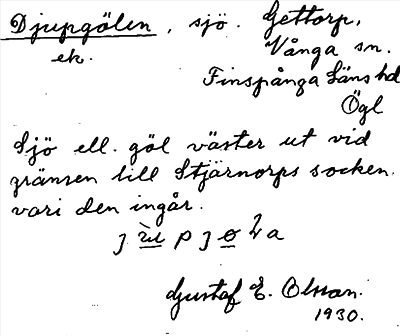 Djupgölen, sjö. Gettorp,
ek. Vånga sn.
Finspånga läns hd
Ögl
Sjö ell. göl väster ut vid
gränsen till Stjärnorps socken.
vari den ingår.
Gustaf E. Olsson.
1930.